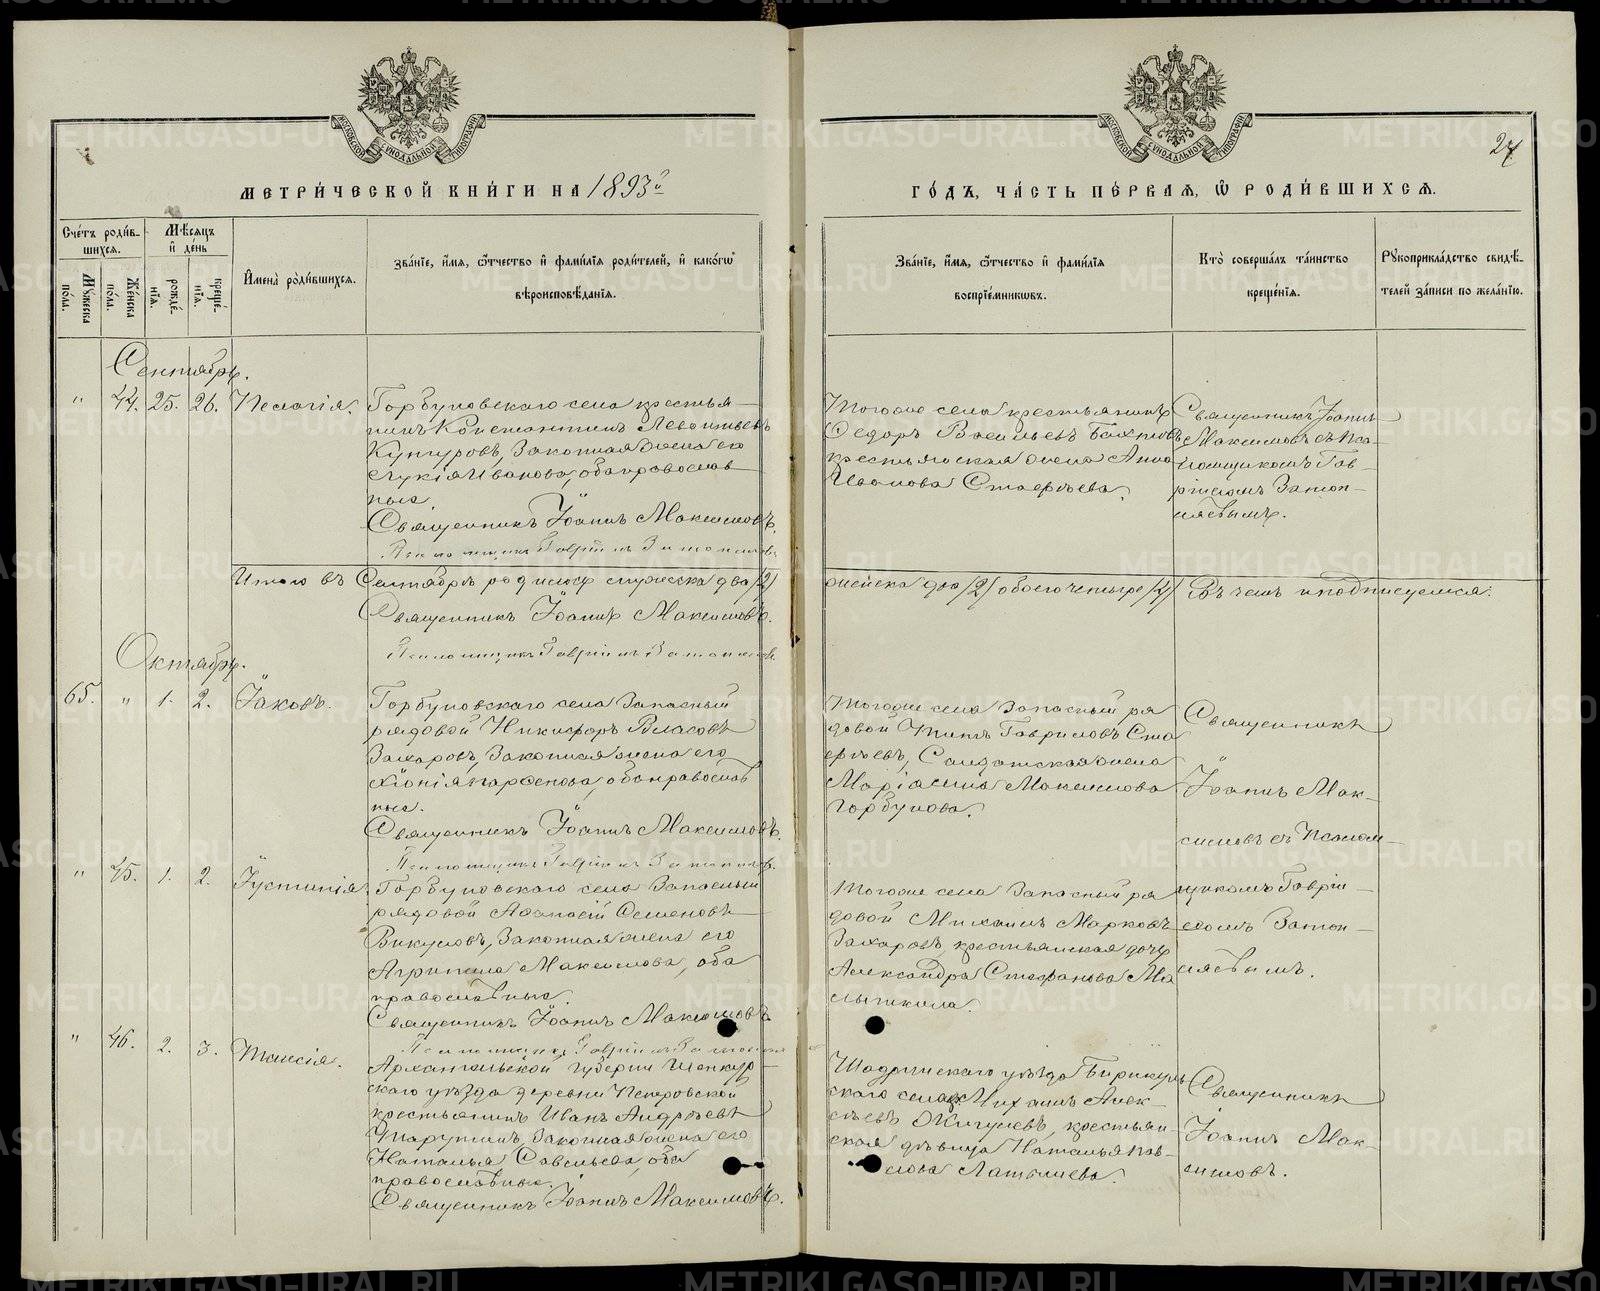 МЕТРИ́ЧЕСКОЙ КНИ́ГИ НА 1893й
Сче́тъ роди́в-
шихся.
Мѣ́сяцъ
и҆ де́нь
Му́жеска
по́ла.
Же́нска
по́ла.
рожде́-
нїѧ.
креще́-
нїѧ.
И҆мена̀ роди́вшихсѧ.
Зва́нїе, и҆́мѧ, ѻ҆́тчество и҆ фами́лїѧ роди́телей, и҆ како́гѡ
вѣроисповѣ́данїѧ.
Сентябрь.
" 44. 25. 26. Пелагія.
Горбуновскаго села крестья-
нинъ Константинъ Леонтьевъ
Кунгуровъ, Законная жена его
Лукія Иванова, оба православ
ные.
Священникъ Іоаннъ Максимовъ.
Псаломщикъ Гавріилъ
Итого въ Сентябрѣ родилось мужеска два /2/
Священникъ Іоаннъ Максимовъ.
Псаломщикъ Гавріилъ
Октябрь.
65. " 1. 2. Іаковъ.
Горбуновскаго села Запасный
рядовой Никифоръ Власовъ
Захаровъ, Законная жена его
Хіонія Парфенова, оба православ
ные.
Священникъ Іоаннъ Максимовъ.
Псаломщикъ Гавріилъ
" 45. 1. 2. Іустинія.
Горбуновскаго села Запасный
рядовой Афанасій Семеновъ
Викуловъ, Законная жена его
Агрипена Максимова, оба
православные.
Священникъ Іоаннъ Максимовъ
Псаломщикъ Гавріилъ
" 46. 2. 3. Таисія.
Архангельской Губерніи Шенкур-
скаго уѣзда деревни Петровской
крестьянинъ Иванъ Андреевъ
Тарутинъ, Законная жена его
Наталья Савельева, оба
православные.
Священникъ Іоаннъ Максимовъ.
27
ГО́ДЪ, ЧА́СТЬ ПЕ́РВАЯ, Ѡ҆ РОДИ́ВШИХСЯ.
Зва́нїе, и҆́мѧ, ѻ҆́тчество и҆ фами́лїѧ
воспрїе́мникѡвъ.
Кто̀ соверша́лъ та́инство
креще́нїѧ.
Рꙋкоприкла́дство свидѣ́-
телей за́писи по жела́нїю.
Тогоже села крестьянинъ
Федоръ Васильевъ
крестьянская жена Анна
Иванова Стафѣева.
Священникъ Іоаннъ
Максимовъ съ Пса-
ломщикомъ Гав-
ріиломъ Затоп-
ляевымъ.
женска два /2/ обоего четыре /4/ Въ чемъ и подписуемся:
Тогоже села Запасный ря
довой Титъ Гавриловъ Ста
фѣевъ, Солдатская жена
Марія Максимова
Горбунова.
Священникъ
Іоаннъ Мак-
симовъ съ Псалом-
щикомъ Гавріи-
ломъ Затоп-
ляевымъ.
Тогоже села Запасный ря
довой Михаилъ Марковъ
Захаровъ, крестьянская дочь
Александра Стефанова Ма
лышкина.
Шадринскаго уѣзда Бирикуль
скаго села Михаилъ Алек-
сѣевъ Жигулевъ, крестьян-
ская дѣвица Наталья Пав-
лова Латышева.
Священникъ
Іоаннъ Мак-
симовъ.